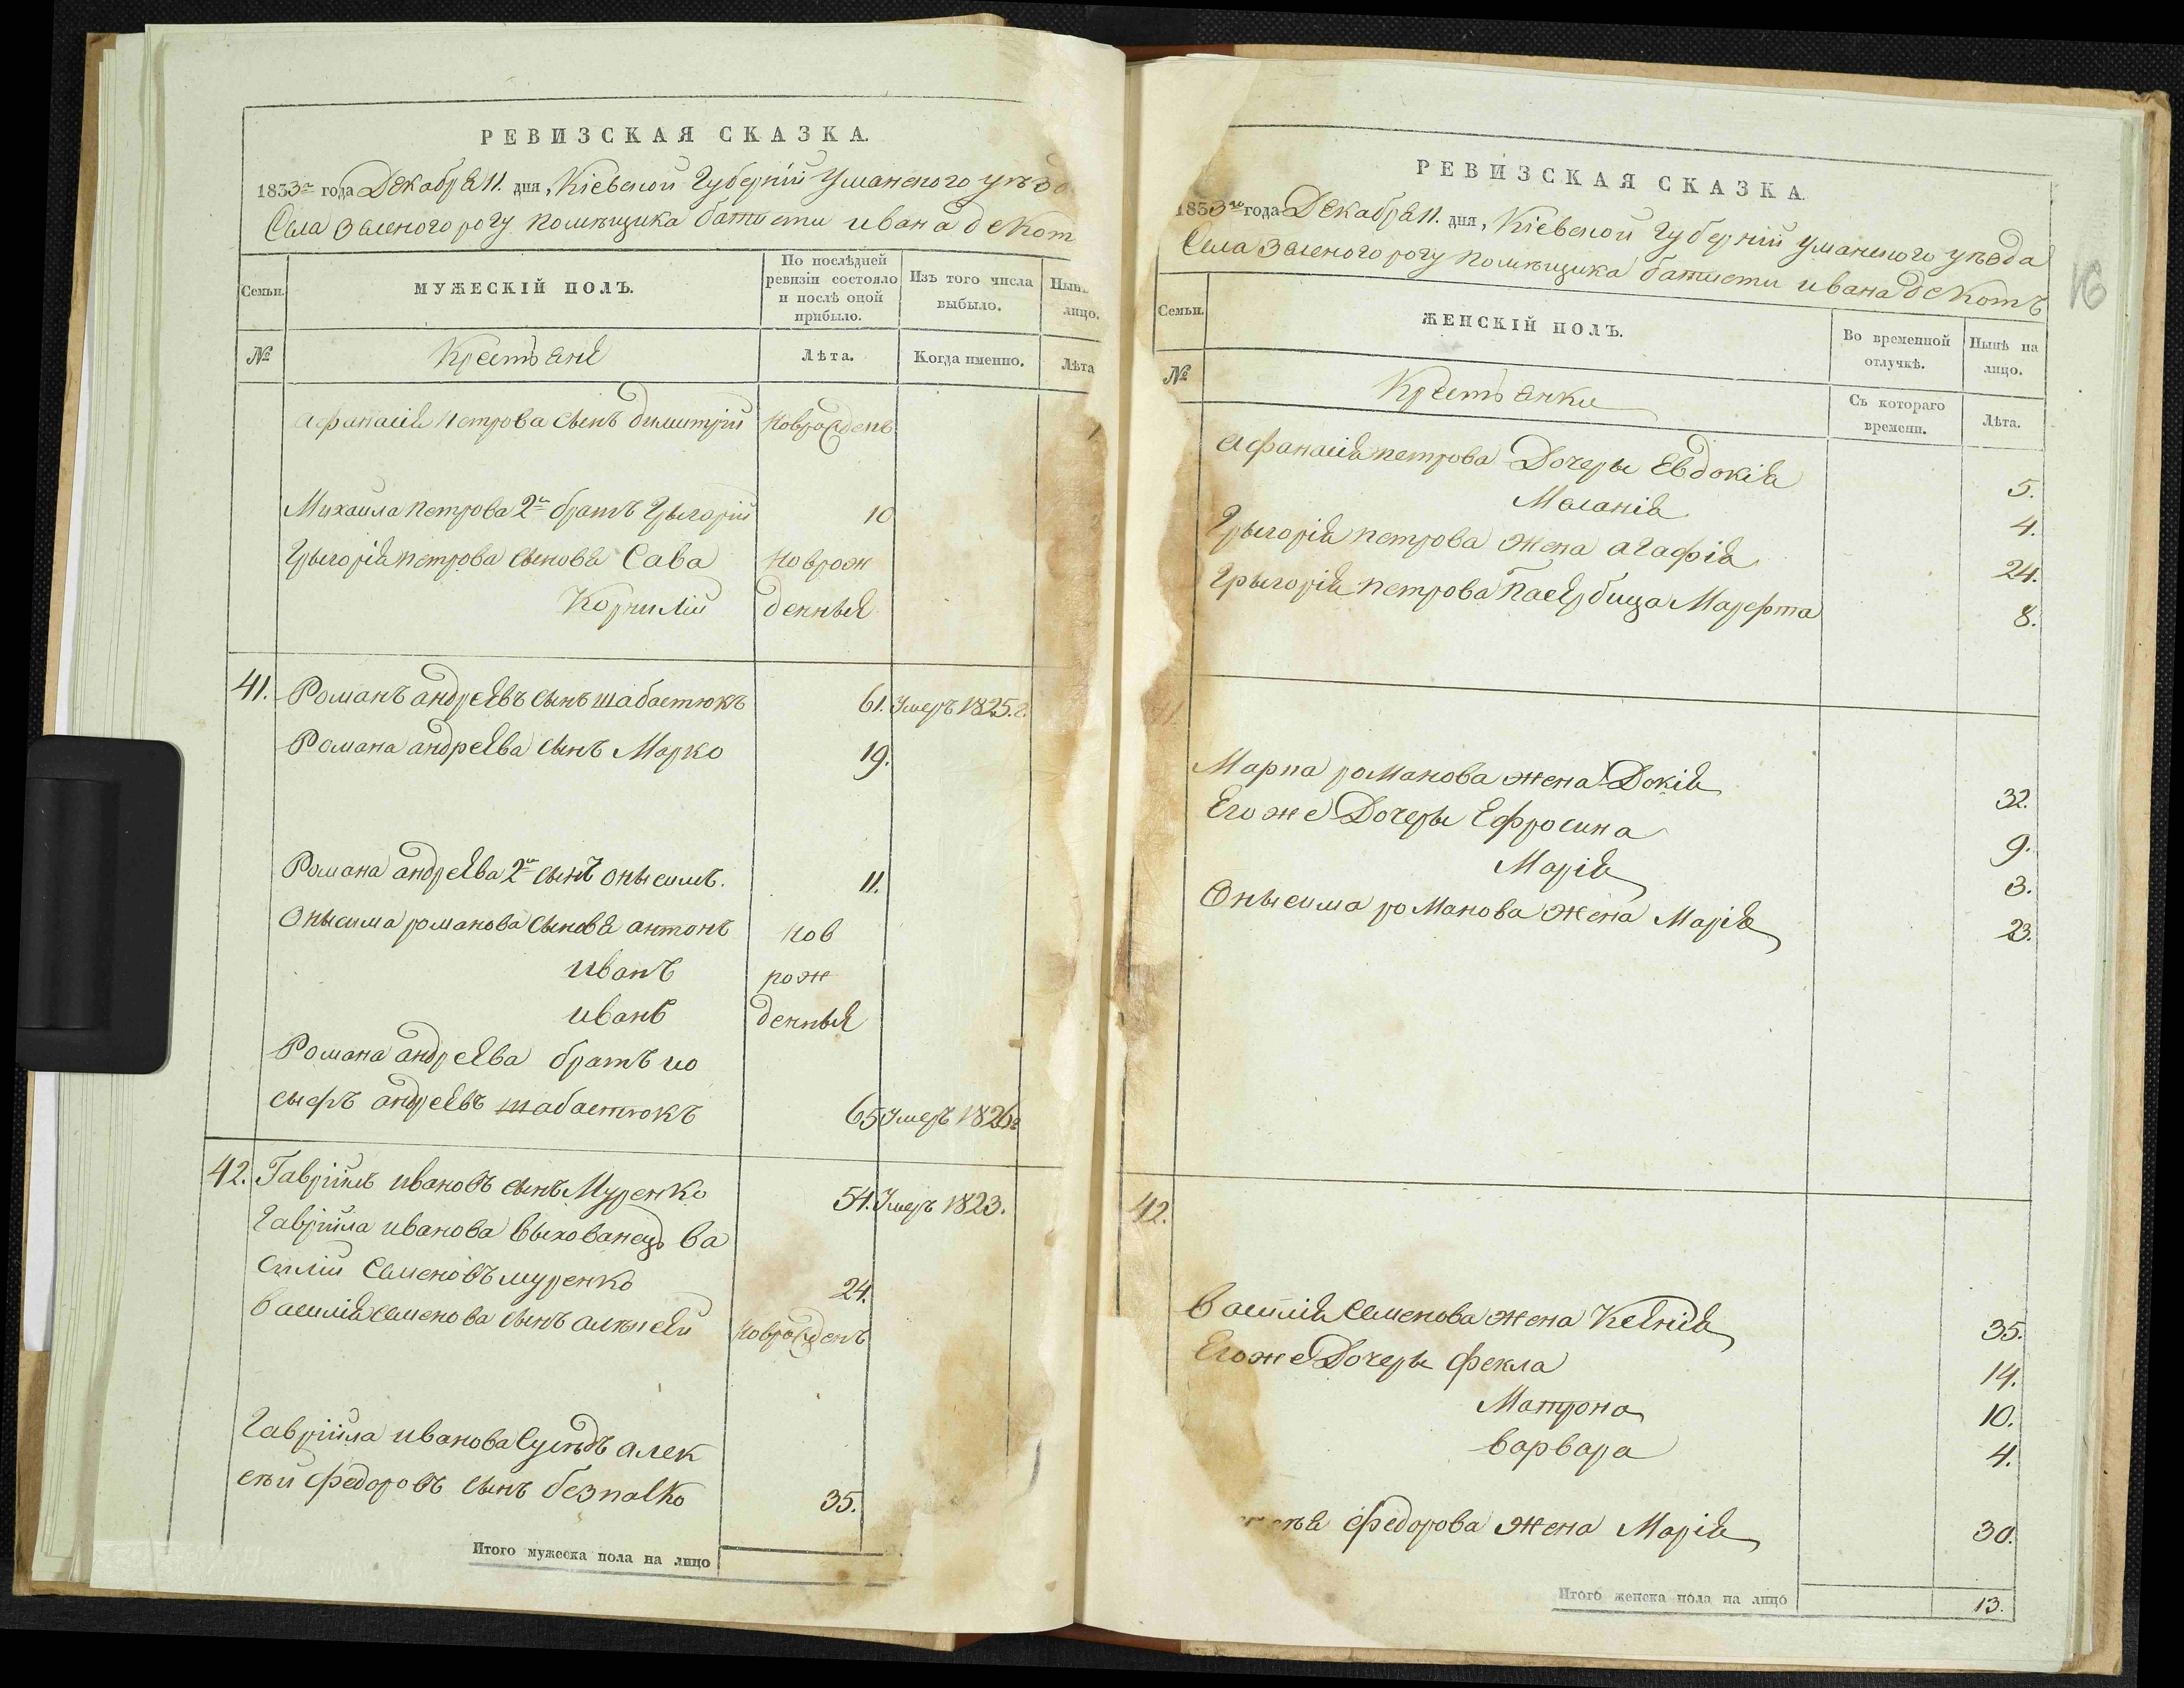 РЕВИЗСКАЯ СКАЗКА.
1833го года Декабря 11. дня, Кіевской Губерніи Уманского уѣзда
Села Зеленого рогу помѣщика батисти ивана декот
Семьи.
МУЖЕСКІЙ ПОЛЪ.
По послѣдней ревизіи состояло и послѣ оной прибыло.
Изъ того числа выбыло.
лицо.
№
Крестьяне
Лѣта.
Когда именно.
Лѣта
Афанасія петрова сынъ димитрій новрожденъ
Михаила петрова 2й братъ Грыгорій 10
Грыгорія петрова сыновя Сава новрож
Корнилій денныя
41. Романъ андреявъ сынъ шабастюкъ 61. Умеръ 1825.г.
Романа андреява сынъ Марко 19.
Романа андреява 2й сынъ онысимъ. 11.
Онысима романова сыновя антонъ нов
иванъ рож
иванъ денныя
Романа андреява братъ ио
сыфъ андреявъ шабастюкъ 65 Умеръ 1826г
42. Гавріилъ ивановъ сынъ Муренко 54. Умеръ 1823.
Гавріила иванова выхованецъ ва
силій Семеновъ муренко 24.
Василія семенова сынъ алексѣй новрожденъ
Гавріила иванова Сусѣдъ алек
сѣй федоровъ сынъ безпалко 35.
Итого мужеска пола на лицо
РЕВИЗСКАЯ СКАЗКА.
1833го года Декабря 11. дня, Кіевской Губерніи Уманского уѣзда
Села Зеленого рогу помѣщика батисти ивана декотъ
16
Семьи.
ЖЕНСКІЙ ПОЛЪ.
Во временной отлучкѣ.
Нынѣ на лицо.
№
Крестьянки
Съ котораго времени.
Лѣта.
Афанасія петрова Дочеры Евдокія 5.
Маланія 4.
Грыгорія петрова жена агафія 24.
Грыгорія петрова Пасярбица Марфта 8.
41.
Марка романова жена Докія 32.
Его же Дочеры Ефросина 9.
Марія 3.
Онысима романова жена Марія 23.
42.
Василія Семенова жена Ксенія 35.
Его же Дочеры Фекла 14.
Матрона 10.
варвара 4.
федорова жена Марія 30.
Итого женска пола на лицо 13.